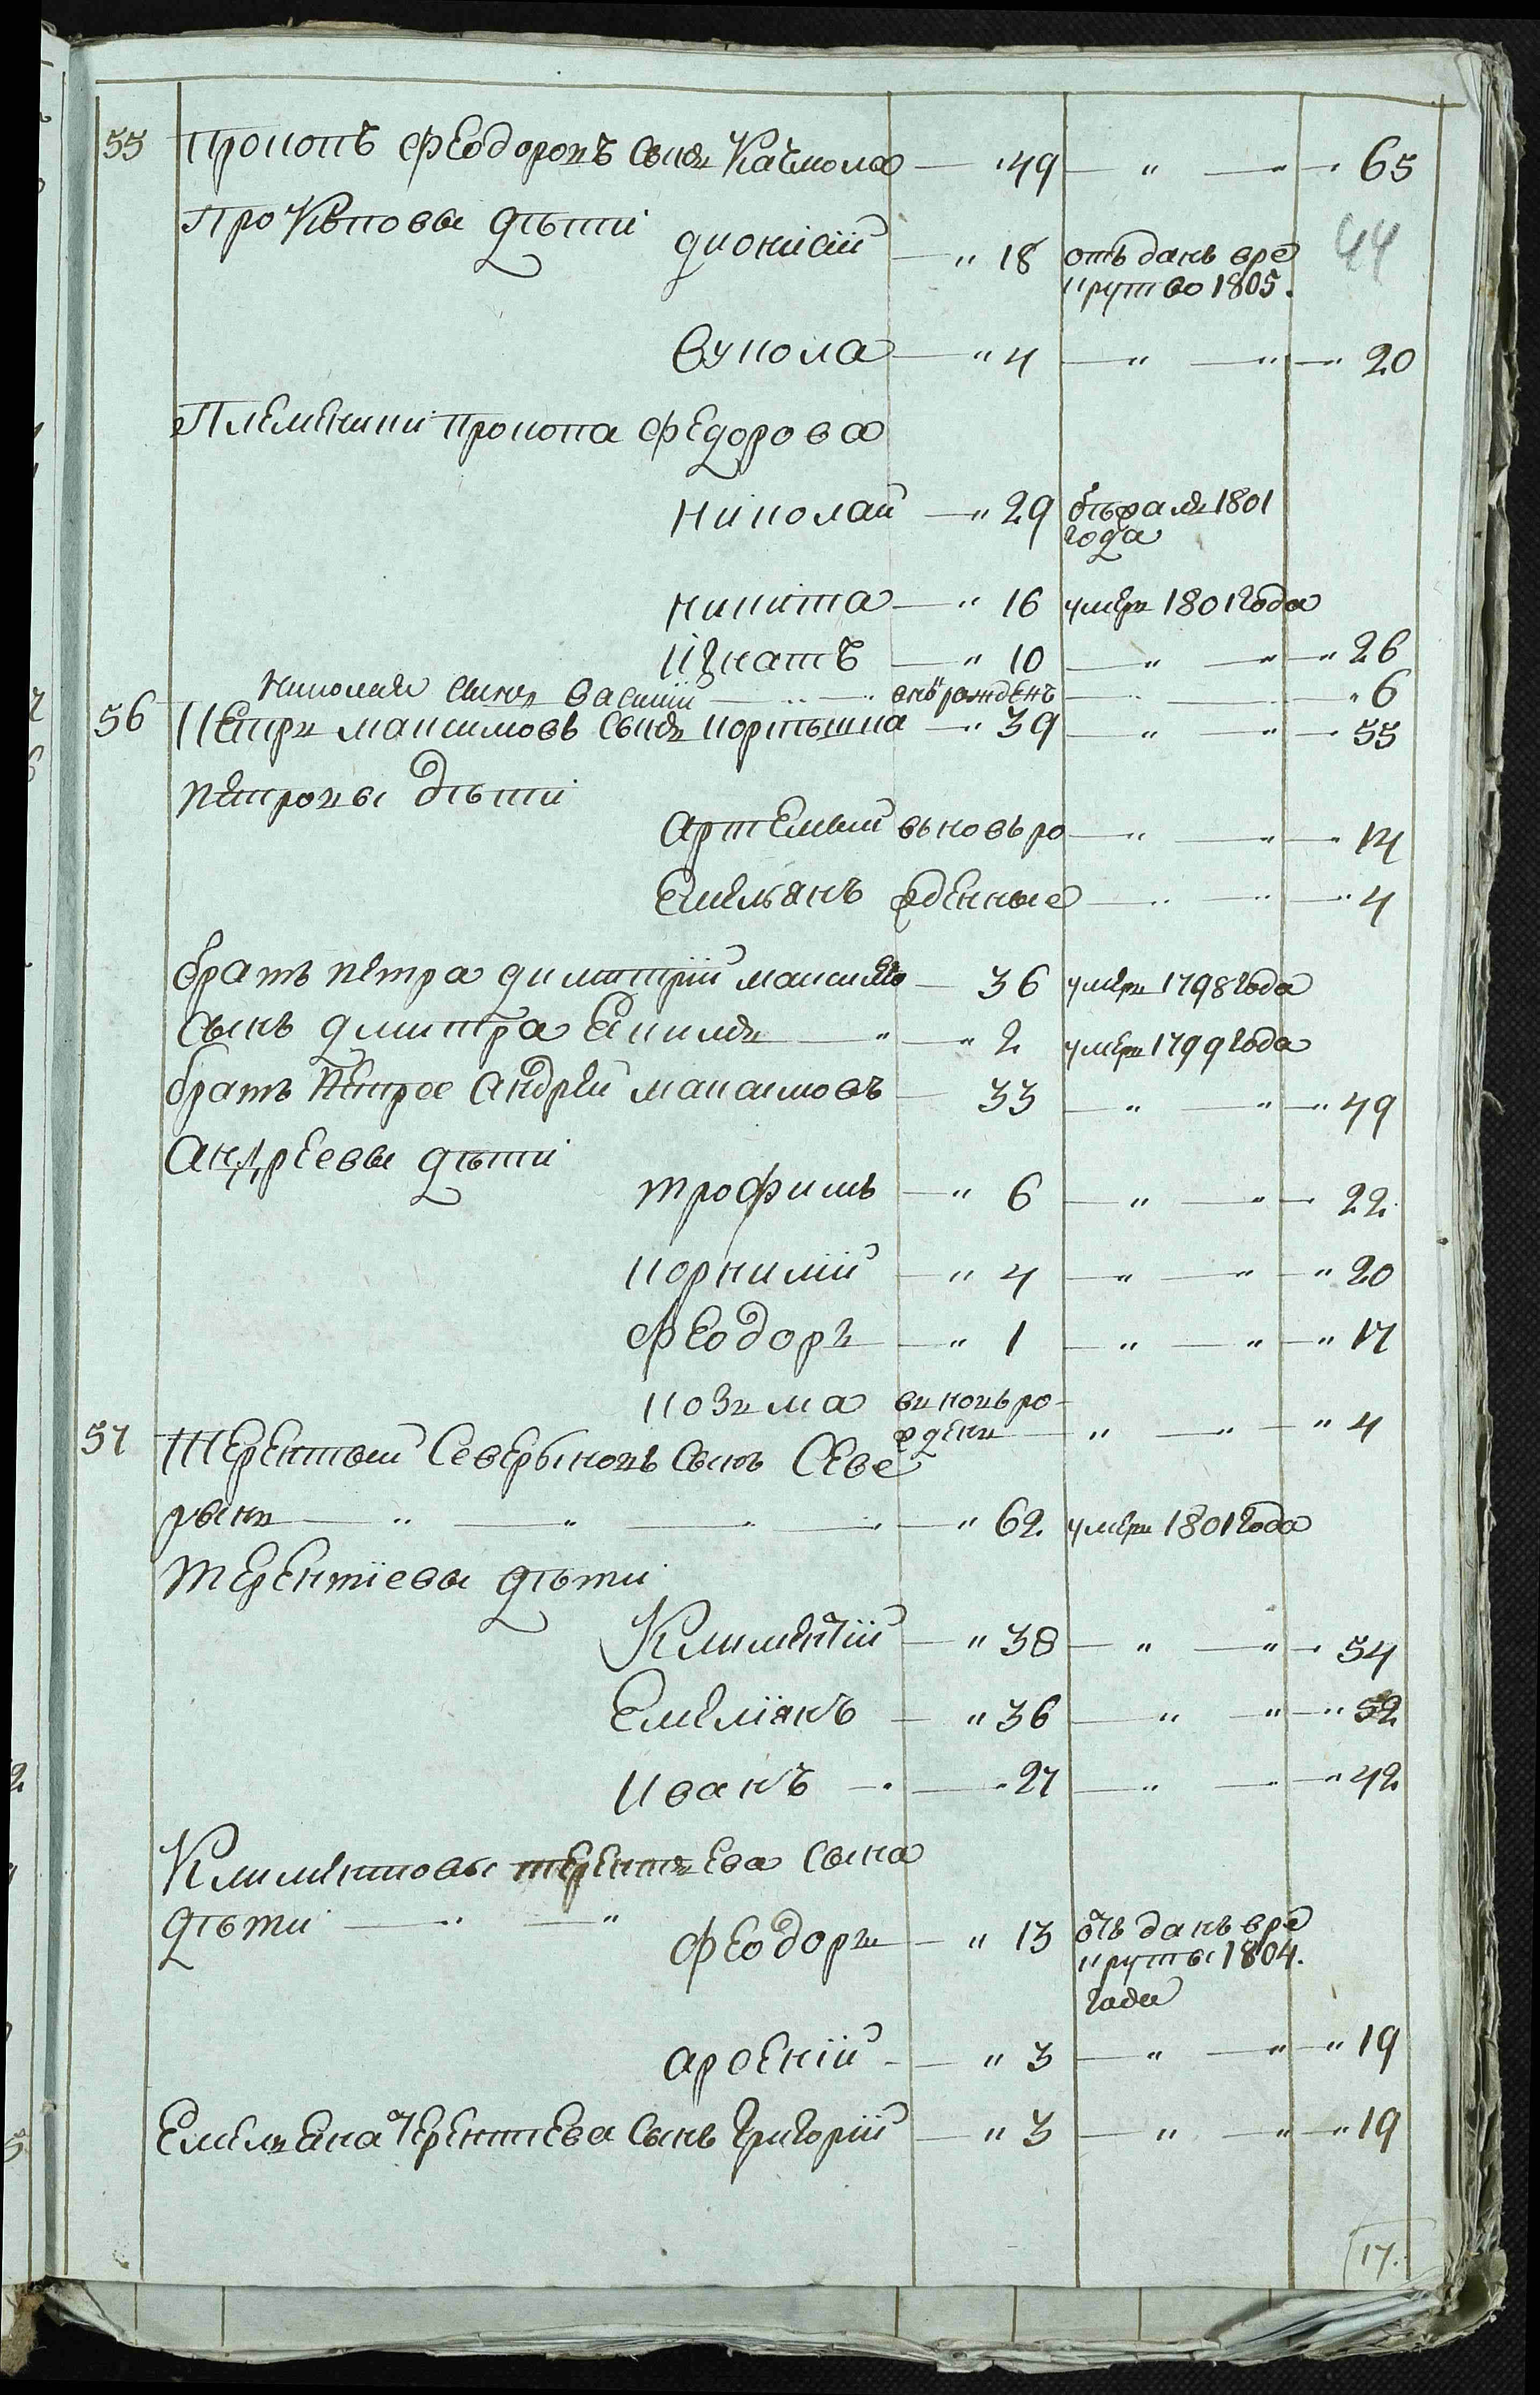 55 Прокопъ Феодоровъ сынъ Качмола — 49 — " — " — 65
Прокоповы дѣти Дионисий — " 18 отъданъ вре
крутъ во 1805.
44
Вукола — " 4 — " — " — " 20
Племеники Прокопа Федорова
Николай — " 29 бѣжалъ 1801
года
Никита — " 16 умеръ 1801 года
Игнатъ — " 10 — " — " — " 26
Николая сынъ Василий — " — " вновъ рожденъ — " — " 6
56 Петръ Максимовъ сынъ Кортышка — " 39 — " — " — 55
Петровы дѣти
Артемий вновь ро — " — " — " 14
Емельянъ жденные — " — " — " 4
братъ Петра Димитрий Максимо — 36 умеръ 1798 года
сынъ Дмитра Екимъ — " — " 2 умеръ 1799 года
братъ Петра Андрей Максимовъ — 33 — " — " — " 49
Андреевы дѣти
Трофимъ — " 6 — " — " — 22.
Корнилий — " 4 — " — " — " 20
Феодоръ — " 1 — " — " — " 17
Козма вновь ро-
жденъ — " — " — " 4
57 Терентий Северыновъ сынъ Севе
рынъ — " — " — " — " — " 62. умеръ 1801 года
Терентïевы дѣти
Климентïй — " 38 — " — " — 54
Емелïанъ — " 36 — " — " — " 52
Иванъ — " — " 27 — " — " — " 42
Климентовы Терентъева сына
дѣти — " — " Феодоръ — " 13 отъданъ вре
круты 1804.
года
Арсенïй — " 3 — " — " — " 19
Емелъяна Терентъева сынъ Григорïй — " 3 — " — " — " 19
17.